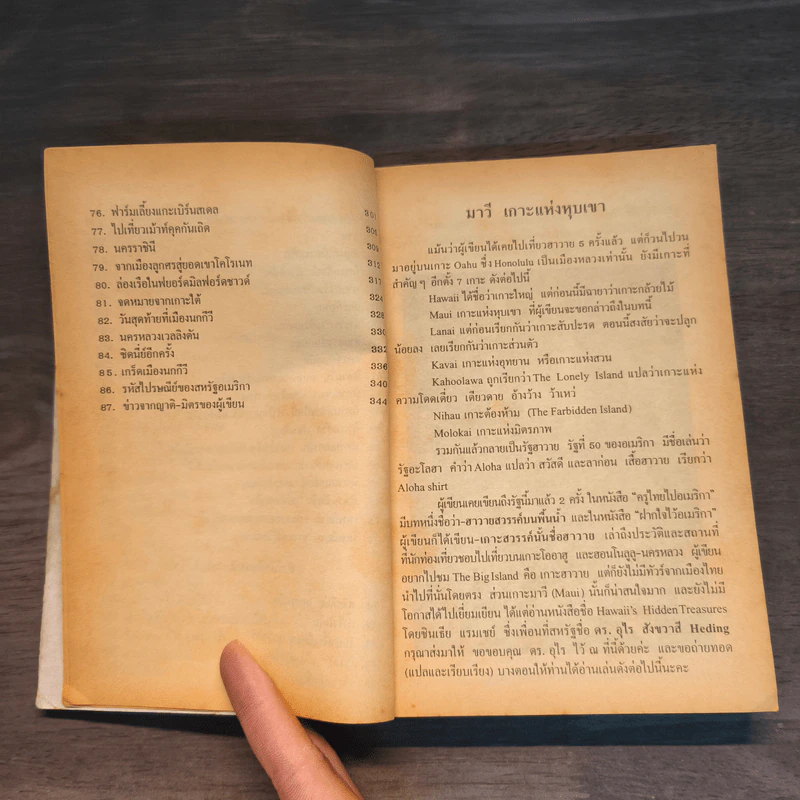 76. ฟาร์มเลี้ยงแกะเบิร์นสเดล 301
77. ไปเที่ยวเม้าท์คุคกันเถิด 305
78. นครราชินี 309
79. จากเมืองลูกศรสู่ยอดเขาโคโรเนท 312
80. ล่องเรือในฟยอร์ดมิลฟอร์ดซาวด์ 317
81. จดหมายจากเกาะใต้ 324
82. วันสุดท้ายที่เมืองนกกีวี 328
83. นครหลวงเวลลิงตัน 330
84. ซิดนี่ย์อีกครั้ง 332
85. เกร็ดเมืองนกกีวี 336
86. รหัสไปรษณีย์ของสหรัฐอเมริกา 340
87. ข่าวจากญาติ-มิตรของผู้เขียน 344
มาวี เกาะแห่งหุบเขา
แม้นว่าผู้เขียนได้เคยไปเที่ยวฮาวาย 5 ครั้งแล้ว แต่ก็วนไปวน
มาอยู่บนเกาะ Oahu ซึ่ง Honolulu เป็นเมืองหลวงเท่านั้น ยังมีเกาะที่
สำคัญๆ อีกตั้ง 7 เกาะ ดังต่อไปนี้
Hawaii ได้ชื่อว่าเกาะใหญ่ แต่ก่อนนี้มีฉายาว่าเกาะกล้วยไม้
Maui เกาะแห่งหุบเขา ที่ผู้เขียนจะขอกล่าวถึงในบทนี้
Lanai แต่ก่อนเรียกกันว่าเกาะสับปะรด ตอนนี้สงสัยว่าจะปลูก
น้อยลง เลยเรียกกันว่าเกาะส่วนตัว
Kavai เกาะแห่งอุทยาน หรือเกาะแห่งสวน
Kahoolawa ถูกเรียกว่า The Lonely Island แปลว่าเกาะแห่ง
ความโดดเดี่ยว เดียวดาย อ้างว้าง ว้าเหว่
Nihau เกาะต้องห้าม (The Farbidden Island)
Molokai เกาะแห่งมิตรภาพ
รวมกันแล้วกลายเป็นรัฐฮาวาย รัฐที่ 50 ของอเมริกา มีชื่อเล่นว่า
รัฐอะโลฮา คำว่า Aloha แปลว่า สวัสดี และลาก่อน เสื้อฮาวาย เรียกว่า
Aloha shirt
ผู้เขียนเคยเขียนถึงรัฐนี้มาแล้ว 2 ครั้ง ในหนังสือ "ครูไทยไปอเมริกา"
มีบทหนึ่งชื่อว่า-ฮาวายสวรรค์บนพื้นน้ำ และในหนังสือ "ฝากใจไว้อเมริกา"
ผู้เขียนก็ได้เขียน-เกาะสวรรค์นั้นชื่อฮาวาย เล่าถึงประวัติและสถานที่
ที่นักท่องเที่ยวชอบไปเที่ยวบนเกาะโออาฮู และฮอนโนลูลู-นครหลวง ผู้เขียน
อยากไปชม The Big Island คือ เกาะฮาวาย แต่ก็ยังไม่มีทัวร์จากเมืองไทย
นำไปที่นั่นโดยตรง ส่วนเกาะมาวี (Maui) นั้นก็น่าสนใจมาก และยังไม่มี
โอกาสได้ไปเยี่ยมเยียน ได้แต่อ่านหนังสือชื่อ Hawaii's Hidden Treasures
โดยซินเธีย แรมเซย์ ซึ่งเพื่อนที่สหรัฐชื่อ ดร. อุไร สังขวาสี Heding
กรุณาส่งมาให้ ขอขอบคุณ ดร. อุไร ไว้ ณ ที่นี้ด้วยค่ะ และขอถ่ายทอด
(แปลและเรียบเรียง) บางตอนให้ท่านได้อ่านเล่นดังต่อไปนี้นะคะ